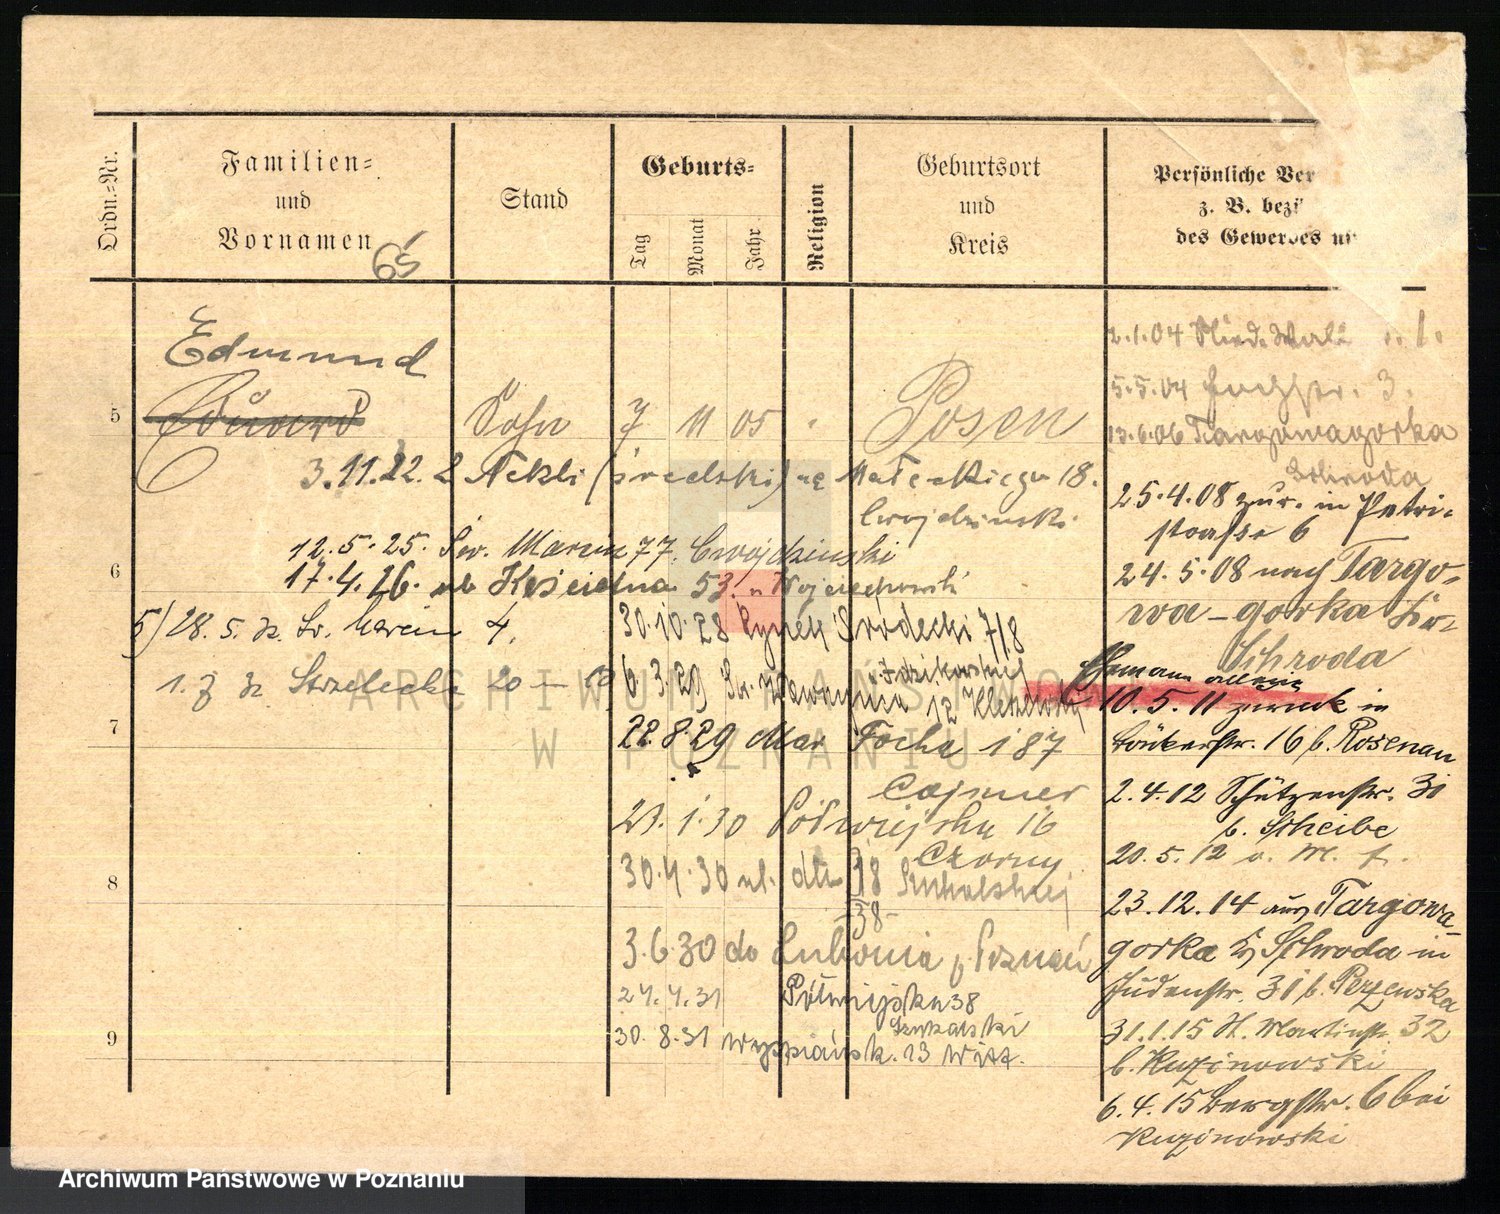 Ordn.=Nr.
Familien=
und
Vornamen
Stand
Geburts=
Tag
Monat
Jahr
Religion
Geburtsort
und
Kreis
Persönliche Ver
z. B. bezü
des Gewerbes u
65
Edmund
5 Eduard Sohn 7 11 05 " Posen
3.11.22. z Nekli (średzki) na Małeckiego 18.
Cwojdzinski
12.5.25. Św. Marcin 77. Cwojdzinski
6
17.4.26. ul. Kościelna 53. u Wojciechowski
5) 28.5. Św. Marcin 4.
30.10.28 Rynek Środecki 7/8
1. Strzelecka 20
6.3.29 Św. Wawrzyńca 12
7
22.8.29 Mar Focha 187
Cajmer
23.1.30 Półwiejska 16
Czorny
8
30.4.30 ul. dto 38
38
3.6.30 do Lubonia p. Poznań
27.4.31 Półwiejska 38
Szukalski
9
30.8.31 Wyspiańsk. 13
2.1.04
5.5.04 3.
13.6.06 Targowagorka
Schroda
25.4.08 zur. in Petri-
straße 6
24.5.08 nach Targo-
wa-gorka
Schroda
Ehemann allein
10.5.11 zurück in
16 b. Rosenau
2.4.12 Schützenstr. 31
b. Scheibe
20.5.12
23.12.14 aus Targowa-
gorka Kr. Schroda in
Judenstr. 31 b. Perzewska
31.1.15 St. Martinstr. 32
b. Kuzinowski
6.4.15 Bergstr. 6 bei
Kuzinowski
ARCHIWUM PAŃSTWOWE
W POZNANIU
Archiwum Państwowe w Poznaniu